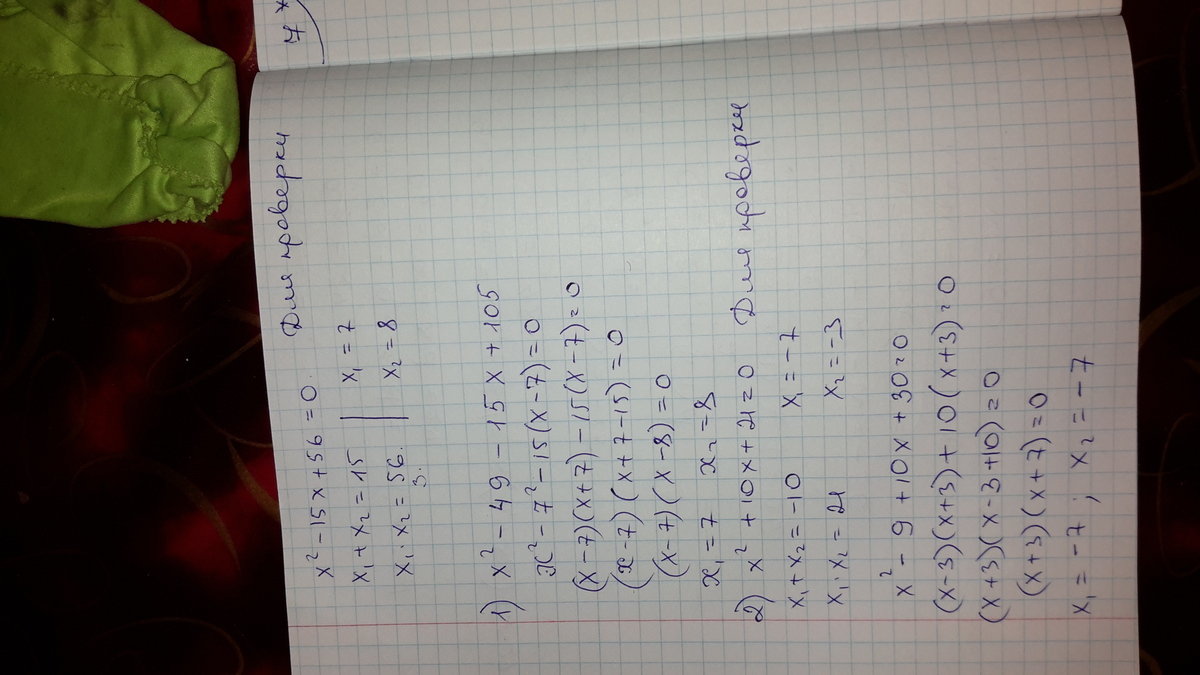 7 x
x² - 15x + 56 = 0. Для проверки
x₁ + x₂ = 15 | x₁ = 7
x₁ · x₂ = 56. | x₂ = 8
3.
1) x² - 49 - 15x + 105
x² - 7² - 15(x - 7) = 0
(x - 7)(x + 7) - 15(x - 7) = 0
(x - 7)(x + 7 - 15) = 0
(x - 7)(x - 8) = 0
x₁ = 7 x₂ = 8
2) x² + 10x + 21 = 0 Для проверки
x₁ + x₂ = -10 x₁ = -7
x₁ · x₂ = 21 x₂ = -3
x² - 9 + 10x + 30 = 0
(x - 3)(x + 3) + 10(x + 3) = 0
(x + 3)(x - 3 + 10) = 0
(x + 3)(x + 7) = 0
x₁ = -7 ; x₂ = -7